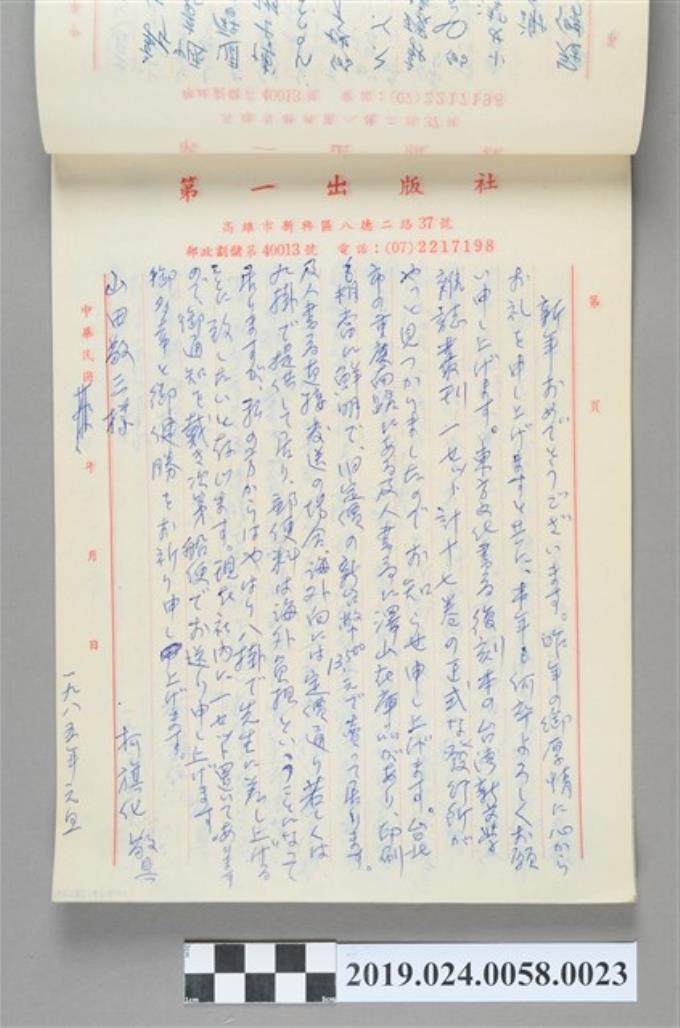 第一出版社
高雄市新興區八德二路37號
郵政劃儲第40013號 電話：(07)2217198
第 頁
新年おめでとうございます。昨年の御厚情に心から
お礼を申し上げますと共に、本年も何卒よろしくお願
い申し上げます。東方文化書局復刻本の台湾新文学
雑誌叢刊一セット計十七巻の正式な發行所が
やっと見つかりましたのでお知らせ申し上げます。台北
市の重慶南路にある友人書局に澤山在庫品があり、印刷
も相当に鮮明で、旧定價の新台幣13500元で売って居ります。
友人書局直接发送の場合、海外向には定價通り若しくは
九掛で提供して居り、郵便料は海外負担ということになって
居りますが、私の方からはやはり八掛で先生に差し上げる
ことに致したいと存じます。現在社内に一セット置いてあります
ので御通知を戴き次第船便でお送り申し上げます。
御多幸と御健勝をお祈り申し上げます。
山田敬三様
柯旗化 敬具
中華民國 年 月 日
一九八五年元旦
2019.024.0058.0023